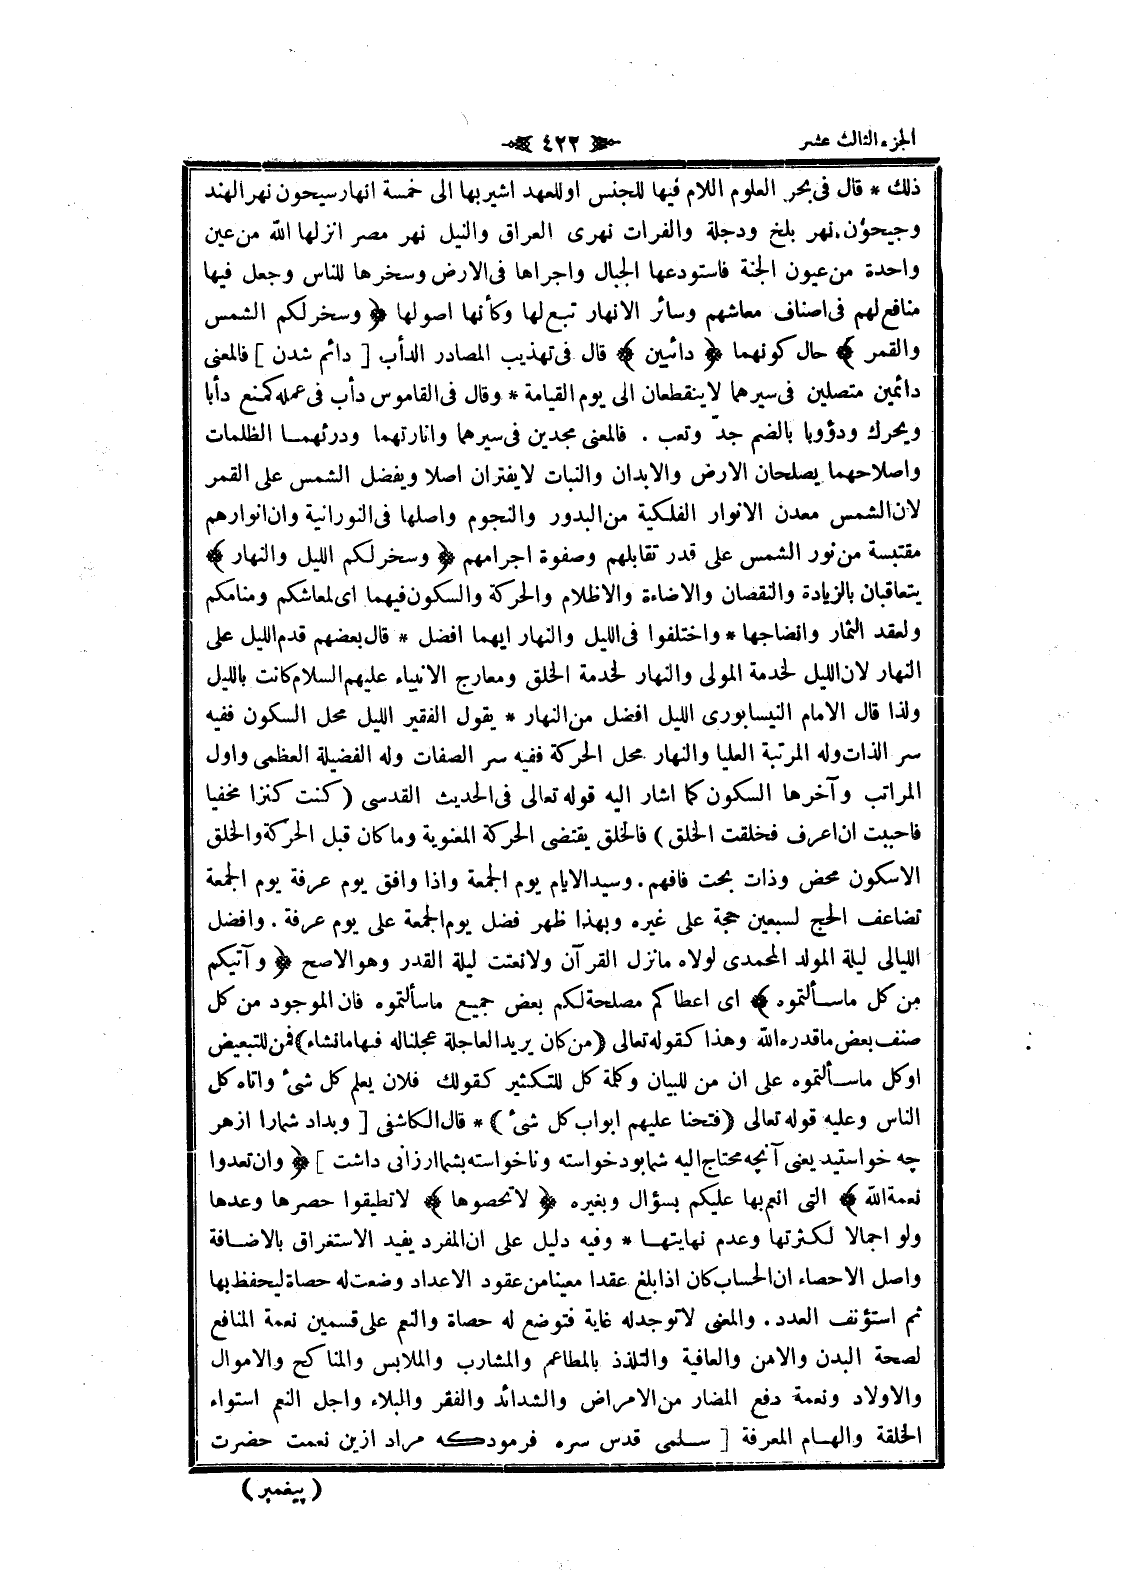 الجزء الثالث عشر
٤٢٢
ذلك * قال فى بحر العلوم اللام فيها للجنس او للعهد اشير بها الى خمسة انهار سيحون نهر الهند
وجيحون نهر بلخ ودجلة والفرات نهرى العراق والنيل نهر مصر انزلها الله من عين
واحدة من عيون الجنة فاستودعها الجبال واجراها فى الارض وسخرها للناس وجعل فيها
منافع لهم فى اصناف معاشهم وسائر الانهار تبع لها وكأنها اصولها ﴿ وسخر لكم الشمس
والقمر ﴾ حال كونهما ﴿ دائبين ﴾ قال فى تهذيب المصادر الدأب [ دائم شدن ] فالمعنى
دائمين متصلين فى سيرهما لا ينقطعان الى يوم القيامة * وقال فى القاموس دأب فى عمله كمنع دأبا
ويحرك ودؤوبا بالضم جدّ وتعب . فالمعنى مجدين فى سيرهما وانارتهما ودرئهما الظلمات
واصلاحهما يصلحان الارض والابدان والنبات لا يفتران اصلا ويفضل الشمس على القمر
لان الشمس معدن الانوار الفلكية من البدور والنجوم واصلها فى النورانية وان انوارهم
مقتبسة من نور الشمس على قدر تقابلهم وصفوة اجرامهم ﴿ وسخر لكم الليل والنهار ﴾
يتعاقبان بالزيادة والنقصان والاضاءة والاظلام والحركة والسكون فيهما اى لمعاشكم ومنامكم
ولعقد الثمار وانضاجها * واختلفوا فى الليل والنهار ايهما افضل * قال بعضهم قدم الليل على
النهار لان الليل لخدمة المولى والنهار لخدمة الخلق ومعارج الانبياء عليهم السلام كانت بالليل
ولذا قال الامام النيسابورى الليل افضل من النهار * يقول الفقير الليل محل السكون ففيه
سر الذات وله المرتبة العليا والنهار محل الحركة ففيه سر الصفات وله الفضيلة العظمى واول
المراتب وآخرها السكون كما اشار اليه قوله تعالى فى الحديث القدسى ( كنت كنزا مخفيا
فاحببت ان اعرف فخلقت الخلق ) فالخلق يقتضى الحركة المعنوية وما كان قبل الحركة والخلق
الا سكون محض وذات بحت فافهم . وسيد الايام يوم الجمعة واذا وافق يوم عرفة يوم الجمعة
تضاعف الحج لسبعين حجة على غيره وبهذا ظهر فضل يوم الجمعة على يوم عرفة . وافضل
الليالى ليلة المولد المحمدى لولاه مانزل القرآن ولا نعتت ليلة القدر وهو الاصح ﴿ وآتيكم
من كل ماسألتموه ﴾ اى اعطاكم مصلحة لكم بعض جميع ماسألتموه فان الموجود من كل
صنف بعض ماقدره الله وهذا كقوله تعالى ( من كان يريد العاجلة عجلنا له فيها مانشاء ) فمن للتبعيض
او كل ماسألتموه على ان من للبيان وكلمة كل للتكثير كقولك فلان يعلم كل شئ واتاه كل
الناس وعليه قوله تعالى ( فتحنا عليهم ابواب كل شئ ) * قال الكاشفى [ وبداد شمارا ازهر
چه خواستيد يعنى آنچه محتاج اليه شما بود خواسته وناخواسته بشما ارزانى داشت ] ﴿ وان تعدوا
نعمة الله ﴾ التى انعم بها عليكم بسؤال وبغيره ﴿ لا تحصوها ﴾ لا تطيقوا حصرها وعدها
ولو اجمالا لكثرتها وعدم نهايتها * وفيه دليل على ان المفرد يفيد الاستغراق بالاضافة
واصل الاحصاء ان الحساب كان اذا بلغ عقدا معينا من عقود الاعداد وضعت له حصاة ليحفظ بها
ثم استؤنف العدد . والمعنى لا توجد له غاية فتوضع له حصاة والنعم على قسمين نعمة المنافع
لصحة البدن والامن والعافية والتلذذ بالمطاعم والمشارب والملابس والمناكح والاموال
والاولاد ونعمة دفع المضار من الامراض والشدائد والفقر والبلاء واجل النعم استواء
الخلقة والهام المعرفة [ سلمى قدس سره فرموده كه مراد ازين نعمت حضرت
( پيغمبر )